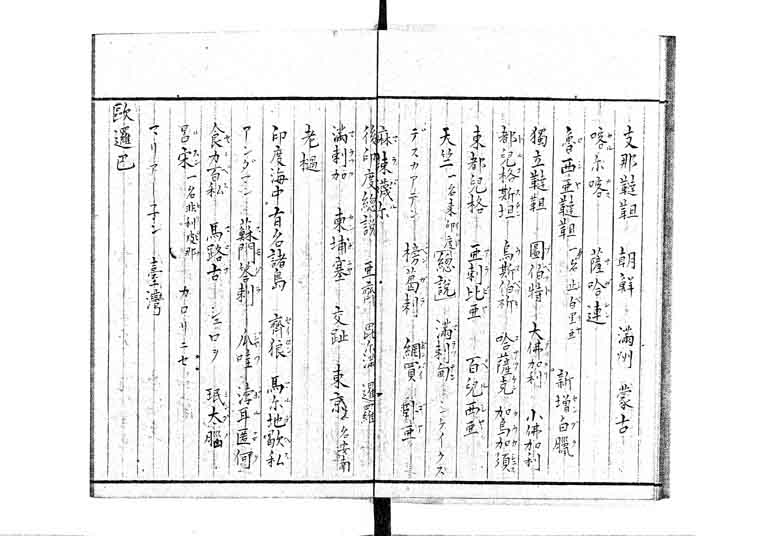 支那韃靼　朝鮮　満州　蒙古
喀尓喀　薩哈連
魯西亜韃靼一名止百里亜　新増白臘
獨立韃靼　圖伯特　大佛加利　小佛加利
都児格斯坦　烏斯伯　哈薩克　加烏加須
東都児格　亜剌比亜　百児西亜
天竺一名東印度総説　満剌甸　シンテイクス
デスカアーテン　榜葛剌　網買　亜
麻辣襪尓
後印度総説　亜　毘尓満　暹羅
満剌加　東埔寨　交趾　東京又名安南
老檛
印度海中有名諸島　齊狼　馬尓地歇私
アンダマン　蘇門答剌　瓜哇　渤耳匿何
食力百私　馬路古　ジロヲ　珉太腦
呂宋一名非利皮那　カロリニセ
マリアー子ン　臺灣
歐邏巴